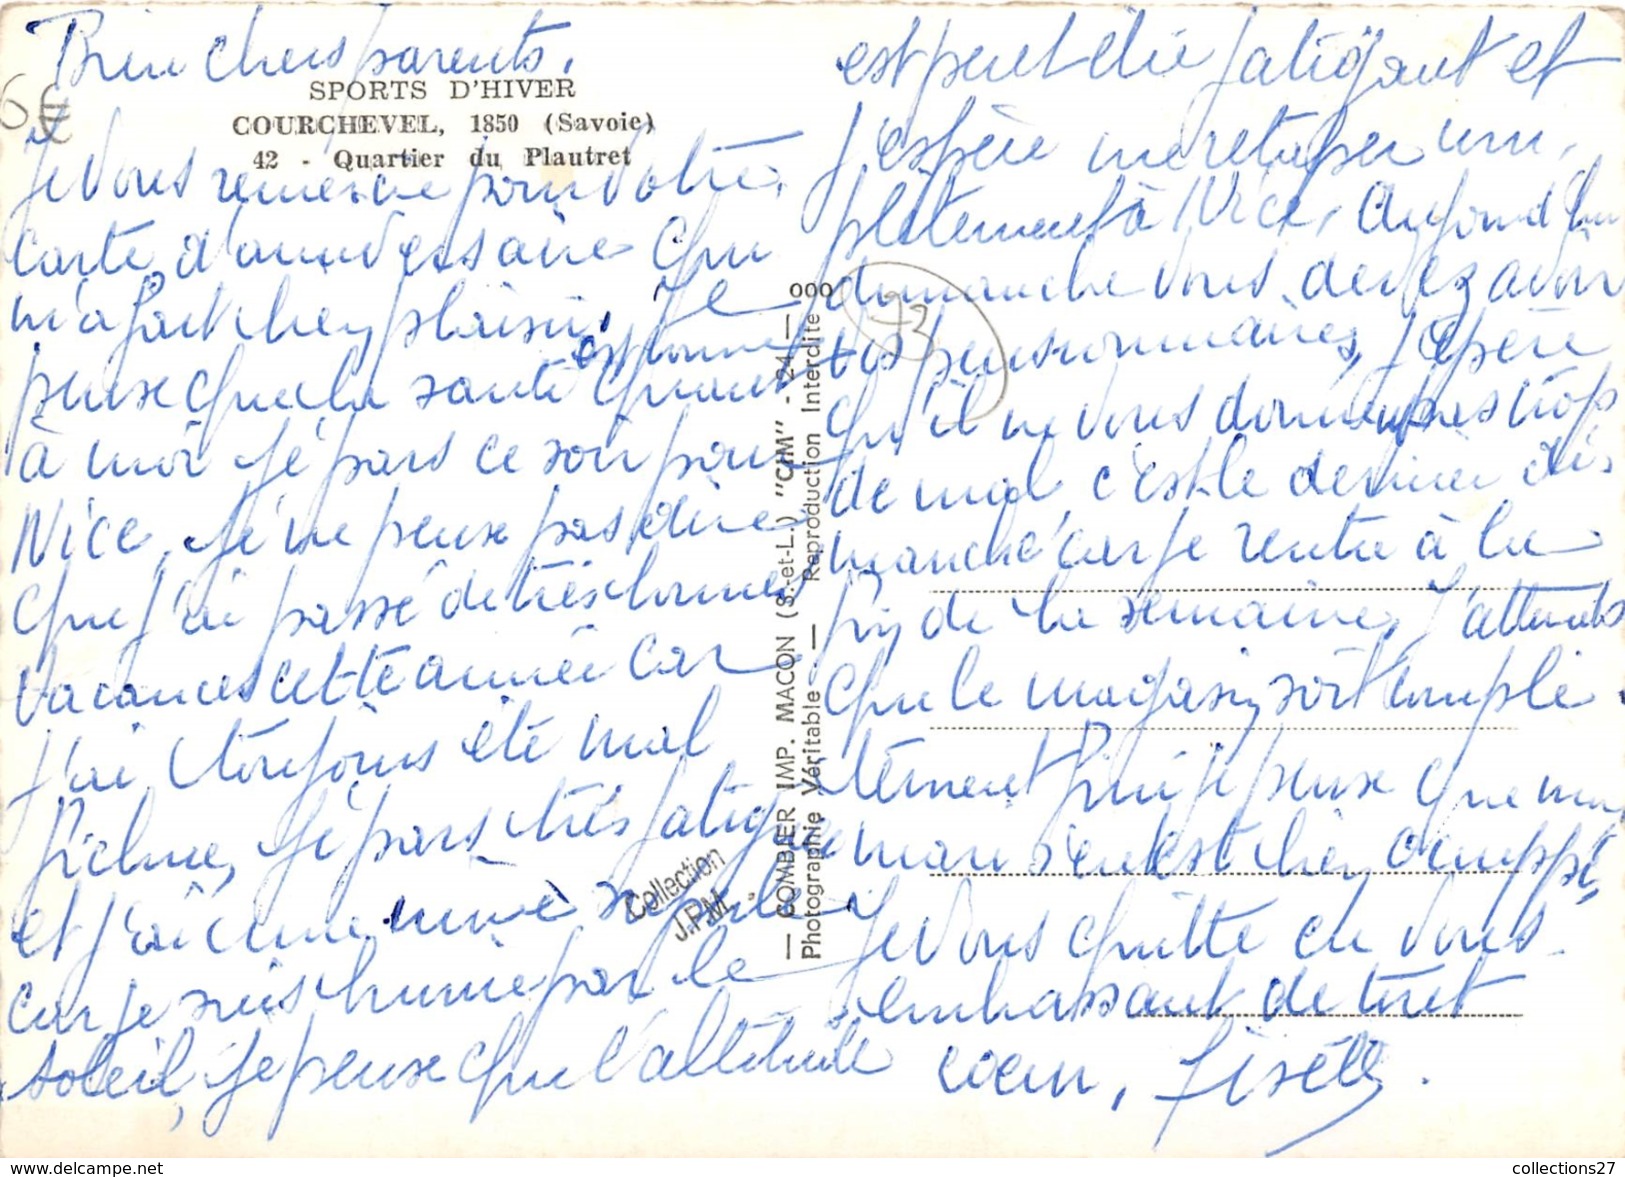 Bien chers parents.
SPORTS D'HIVER
COURCHEVEL, 1850 (Savoie)
42 - Quartier du Plautret
6€
Je vous remercie pour votre
carte d'anniversaire qui
m'a fait bien plaisir. Je
pense que la santé est bonne quant
à moi je pars ce soir pour
Nice, je ne pense pas dire
que j'ai passé de très bonnes
vacances cette année car
j'ai toujours été mal
fichue, je pars très fatiguée
et j'ai une mine
car je suis brunie par le
soleil, je pense que l'altitude
est peut être fatigant et
j'espère me retaper com-
plètement à Nice. Aujourd'hui
dimanche vous devez avoir
vos pensionnaires, j'espère
qu'il ne vous donnent pas trop
de mal, c'est le dernier di-
manche car je rentre à la
fin de la semaine. J'attends
que le magasin soit complè-
tement fini je pense que ma-
man s'en est bien occuppé,
Je vous quitte en vous
embrassant de tout
coeur, Gisèle.
— COMBIER IMP. MACON (S.-et-L.) "CIM" - 24 — ooo
Photographie Véritable — Reproduction Interdite
93
Collection
J.P.M.
www.delcampe.net
collections27